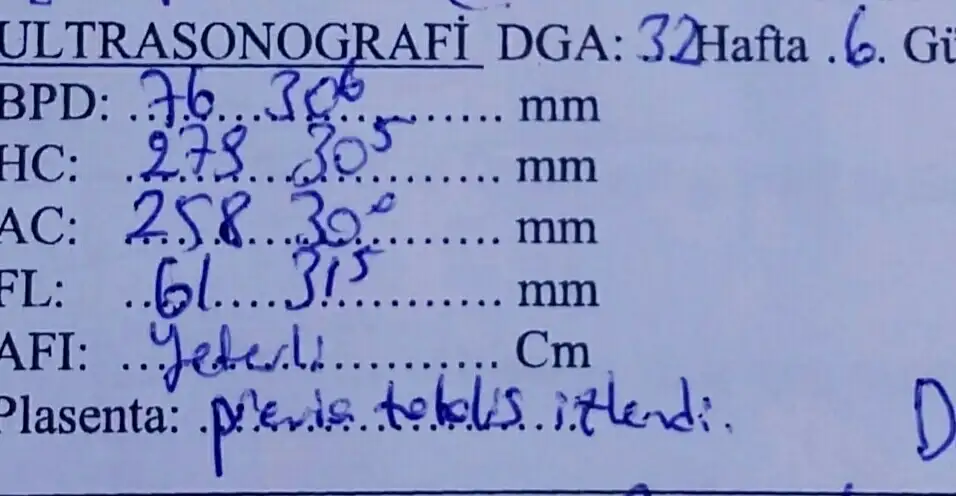 ULTRASONOGRAFİ DGA: 32 Hafta .6. Gü
BPD: ..76...30⁶.......... mm
HC: .273...30⁵.......... mm
AC: 258...30⁰.......... mm
FL: ..61....31⁵.......... mm
AFI: ...yeterli.......... Cm
Plasenta: .previa totalis izlendi.
D